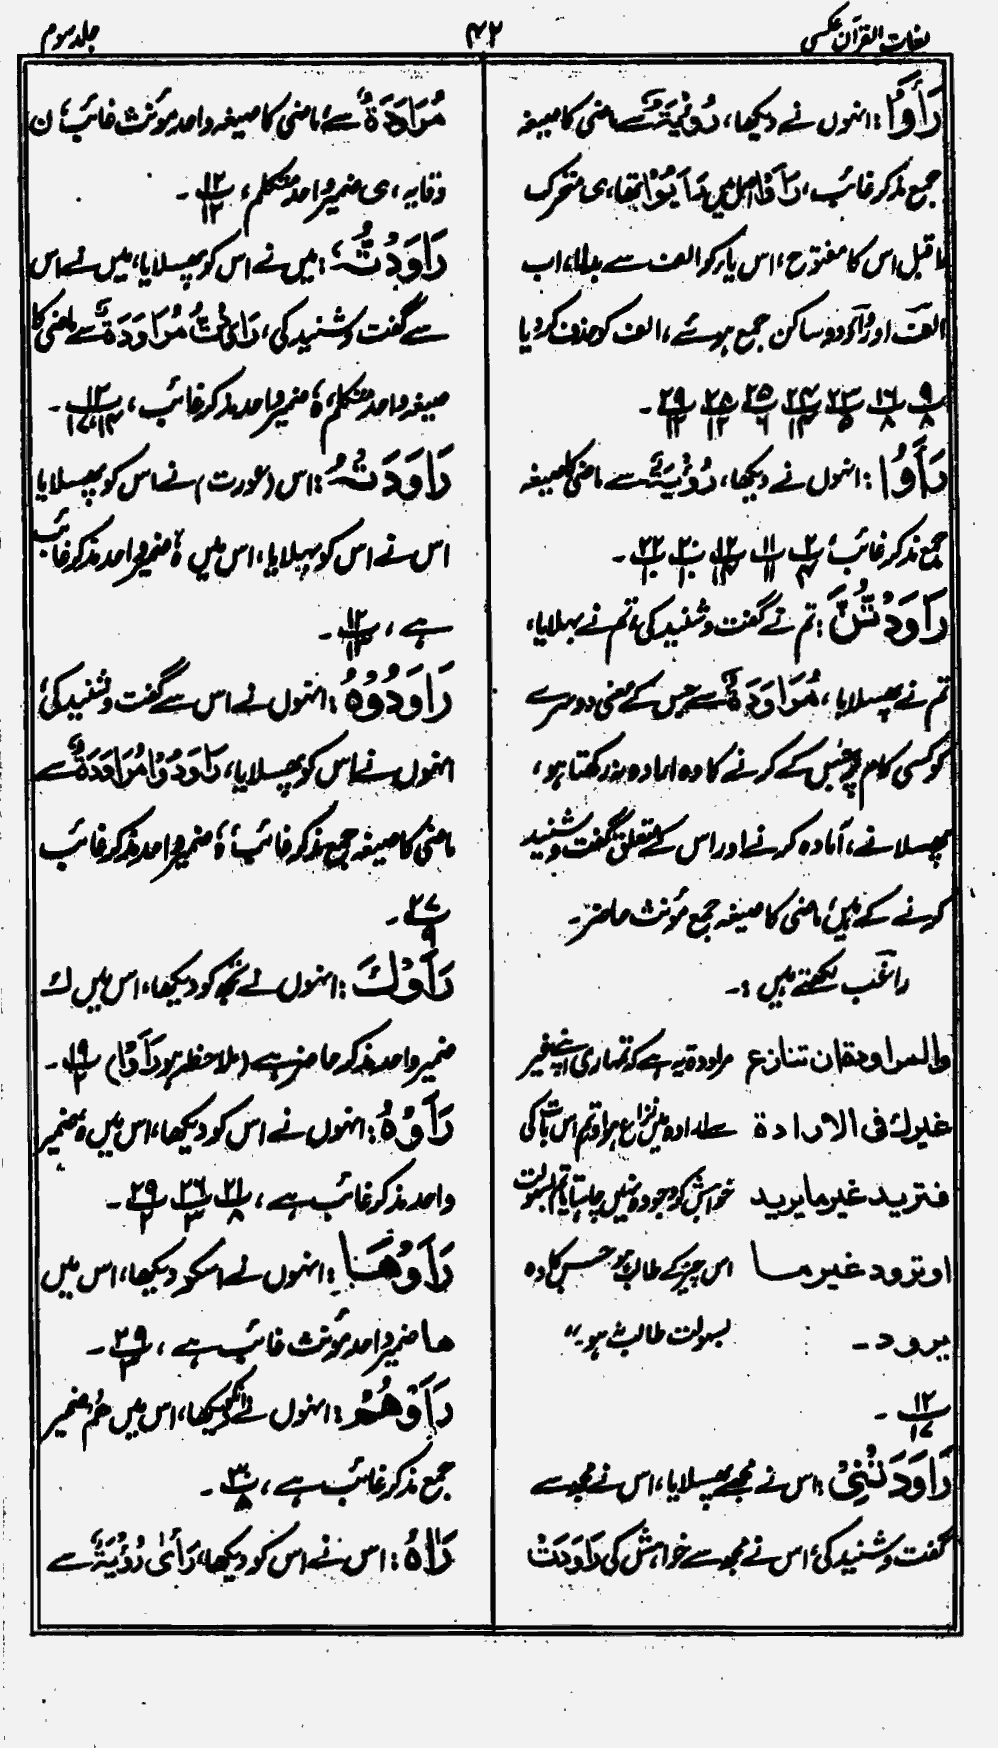 لغات القرآن عکسی
۴۲
جلد سوم
رَأَوْا: انہوں نے دیکھا، رُؤْيَةٌ سے ماضی کا صیغہ
جمع مذکر غائب، رَأَوْا اصل میں رَأَيُوْا تھا، ی متحرک
ماقبل اس کا مفتوح، اس یاء کو الف سے بدلا، اب
الف اور واؤ دو ساکن جمع ہوئے، الف کو حذف کر دیا
۹/۸ ۱۶/۸ ۲۳/۵ ۲۴/۱۴ ۲۵/۶ ۲۸/۱۲ ۲۹/۱۲ ۔
رَأَوُا: انہوں نے دیکھا، رُؤْيَةٌ سے ماضی کا صیغہ
جمع مذکر غائب، ۲/۴ ۱۱/۱۱ ۱۲/۱۴ ۲۰/۱۰ ۲۲/۱۰ ۔
رَاوَدْتُّنَّ: تم نے گفت و شنید کی، تم نے بہلایا،
تم نے پھسلایا، مُرَاوَدَةٌ سے جس کے معنی دوسرے
کو کسی کام پر جس کے کرنے کا وہ ارادہ نہ رکھتا ہو،
پھسلانے، آمادہ کرنے اور اس کے متعلق گفت و شنید
کرنے کے ہیں، ماضی کا صیغہ جمع مؤنث حاضر۔
راغب لکھتے ہیں :۔
والمراودۃ ان تنازع مراودۃ یہ ہے کہ تمہاری اپنے غیر
غیرك فی الارادة سے ارادہ میں نزاع ہو اور تم اس بات کی
فترید غیر ما یرید خواہش کرو جو وہ نہیں چاہتا یا تم بسہولت
او ترود غیر ما اس چیز کے طالب ہو جس کا وہ
یرود۔ بسہولت طالب نہ ہو۔"
۱۲/۱۷ ۔
رَاوَدَتْنِیْ: اس نے مجھے پھسلایا، اس نے مجھ سے
گفت و شنید کی، اس نے مجھ سے خواہش کی رَاوَدَتْ
مُرَاوَدَةٌ سے، ماضی کا صیغہ واحد مؤنث غائب، ن
وقایہ، ی ضمیر واحد متکلم، ۱۲/۱۳ ۔
رَاوَدْتُّهٗ: میں نے اس کو پھسلایا، میں نے اس
سے گفت و شنید کی، رَاوَدْتُّ مُرَاوَدَةٌ سے ماضی کا
صیغہ واحد متکلم، هٗ ضمیر واحد مذکر غائب، ۱۲/۱۷،۱۴ ۔
رَاوَدَتْهُ: اس (عورت) نے اس کو پھسلایا
اس نے اس کو بہلایا، اس میں هٗ ضمیر واحد مذکر غائب
ہے، ۱۲/۱۳ ۔
رَاوَدُوْهُ: انہوں نے اس سے گفت و شنید کی،
انہوں نے اس کو پھسلایا، رَاوَدُوْا مُرَاوَدَةٌ سے
ماضی کا صیغہ جمع مذکر غائب، هٗ ضمیر واحد مذکر غائب
۲۷/۹ ۔
رَأَوْكَ: انہوں نے تجھ کو دیکھا، اس میں كَ
ضمیر واحد مذکر حاضر ہے (ملاحظہ ہو رَأَوْا) ۱۹/۲ ۔
رَأَوْهُ: انہوں نے اس کو دیکھا، اس میں هٗ ضمیر
واحد مذکر غائب ہے، ۲۱/۸ ۲۶/۳ ۲۹/۲ ۔
رَأَوْهَا: انہوں نے اسکو دیکھا، اس میں
ها ضمیر واحد مؤنث غائب ہے، ۲۹/۳ ۔
رَأَوْهُمْ: انہوں نے انکو دیکھا، اس میں هُمْ ضمیر
جمع مذکر غائب ہے، ۳۰/۸ ۔
رَاٰهُ: اس نے اس کو دیکھا، رَأٰى رُؤْيَةٌ سے